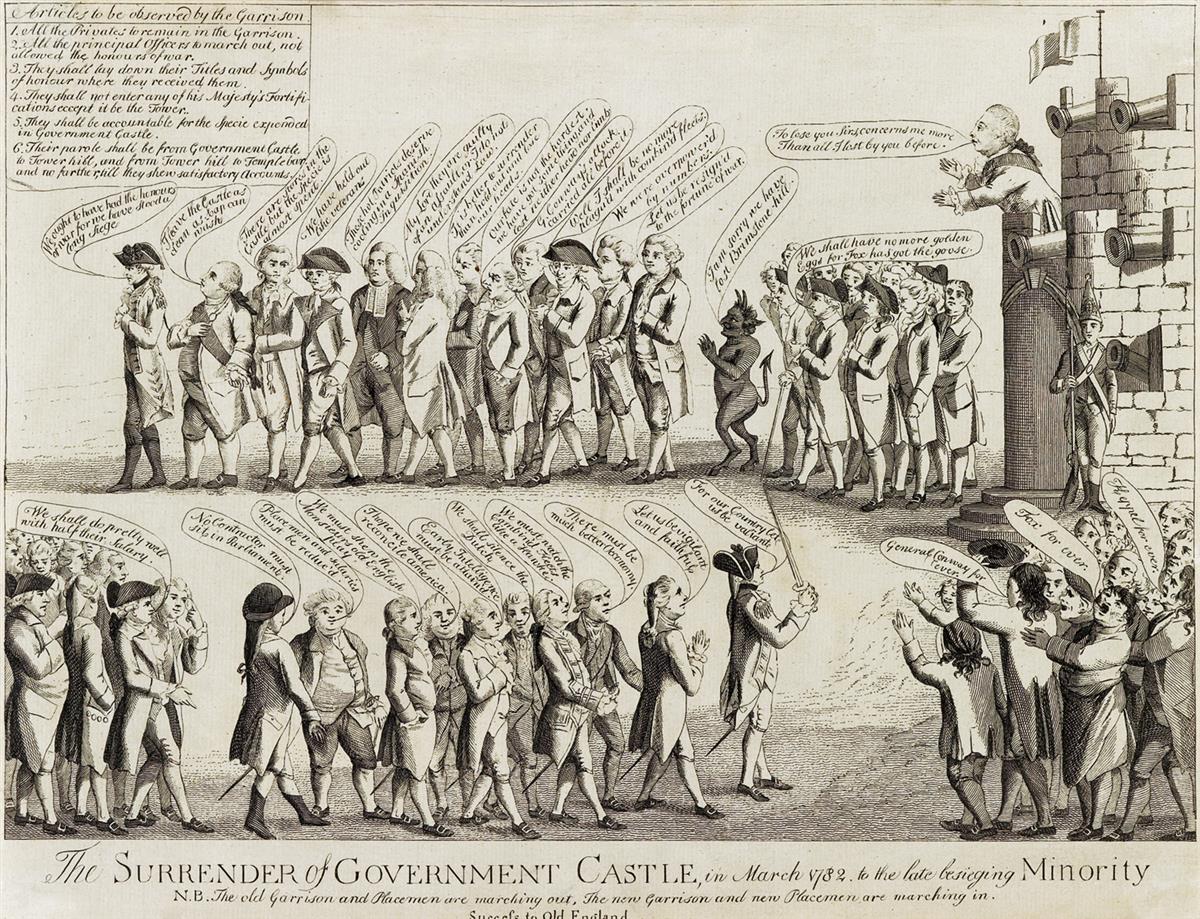 Articles to be observed by the Garrison
1. All the Privates to remain in the Garrison.
2. All the principal Officers to march out, not
allowed the honours of war.
3. They shall lay down their Titles and Symbols
of honour where they received them.
4. They shall not enter any of his Majesty's Fortifi-
cations except it be the Tower.
5. They shall be accountable for the Specie expended
in Government Castle.
6. Their parole shall be from Government Castle
to Tower hill, and from Tower hill to Temple bar
and no farther till they shew satisfactory Accounts.
We ought to have had the honours
of war for we have stood a
long Siege
I leave the Castle as
clean as soap can
wash
There are stores in the
Castle, but the specie is
most spent
We have held out
like veterans
These rat Fairies deserve
cutting into a Spanish
Inquisition
My lord they are guilty
of an absolute
I'd better to surrender
than our heads
our fate is not the hardest, I
lost my
I'll be of my
reward with
We were overpower'd
by numbers.
Let us be resign'd
to the fortune of war.
I am sorry we have
lost Brimstone hill.
We shall have no more golden
Eggs for Fox has got the goose.
To lose you Sirs, concerns me more
Than all I lost by you before.
We shall do pretty well
with half their Salary
No Contractor must
sit in Parliament
Place men's salaries
must be reduced
We must shew the
Monsieurs old English
and policy
I hope we shall
reconcile America
Early Intelligence
must be attained
We shall silence the
Dutch
There must be
much better Oeconomy
Let us be vigilant
and faithful
For our Country let
us be valiant
General Conway for
ever
Fox
for ever
The SURRENDER of GOVERNMENT CASTLE, in March 1782. to the late besieging Minority
N.B. The old Garrison and Placemen are marching out, The new Garrison and new Placemen are marching in.
Success to Old England